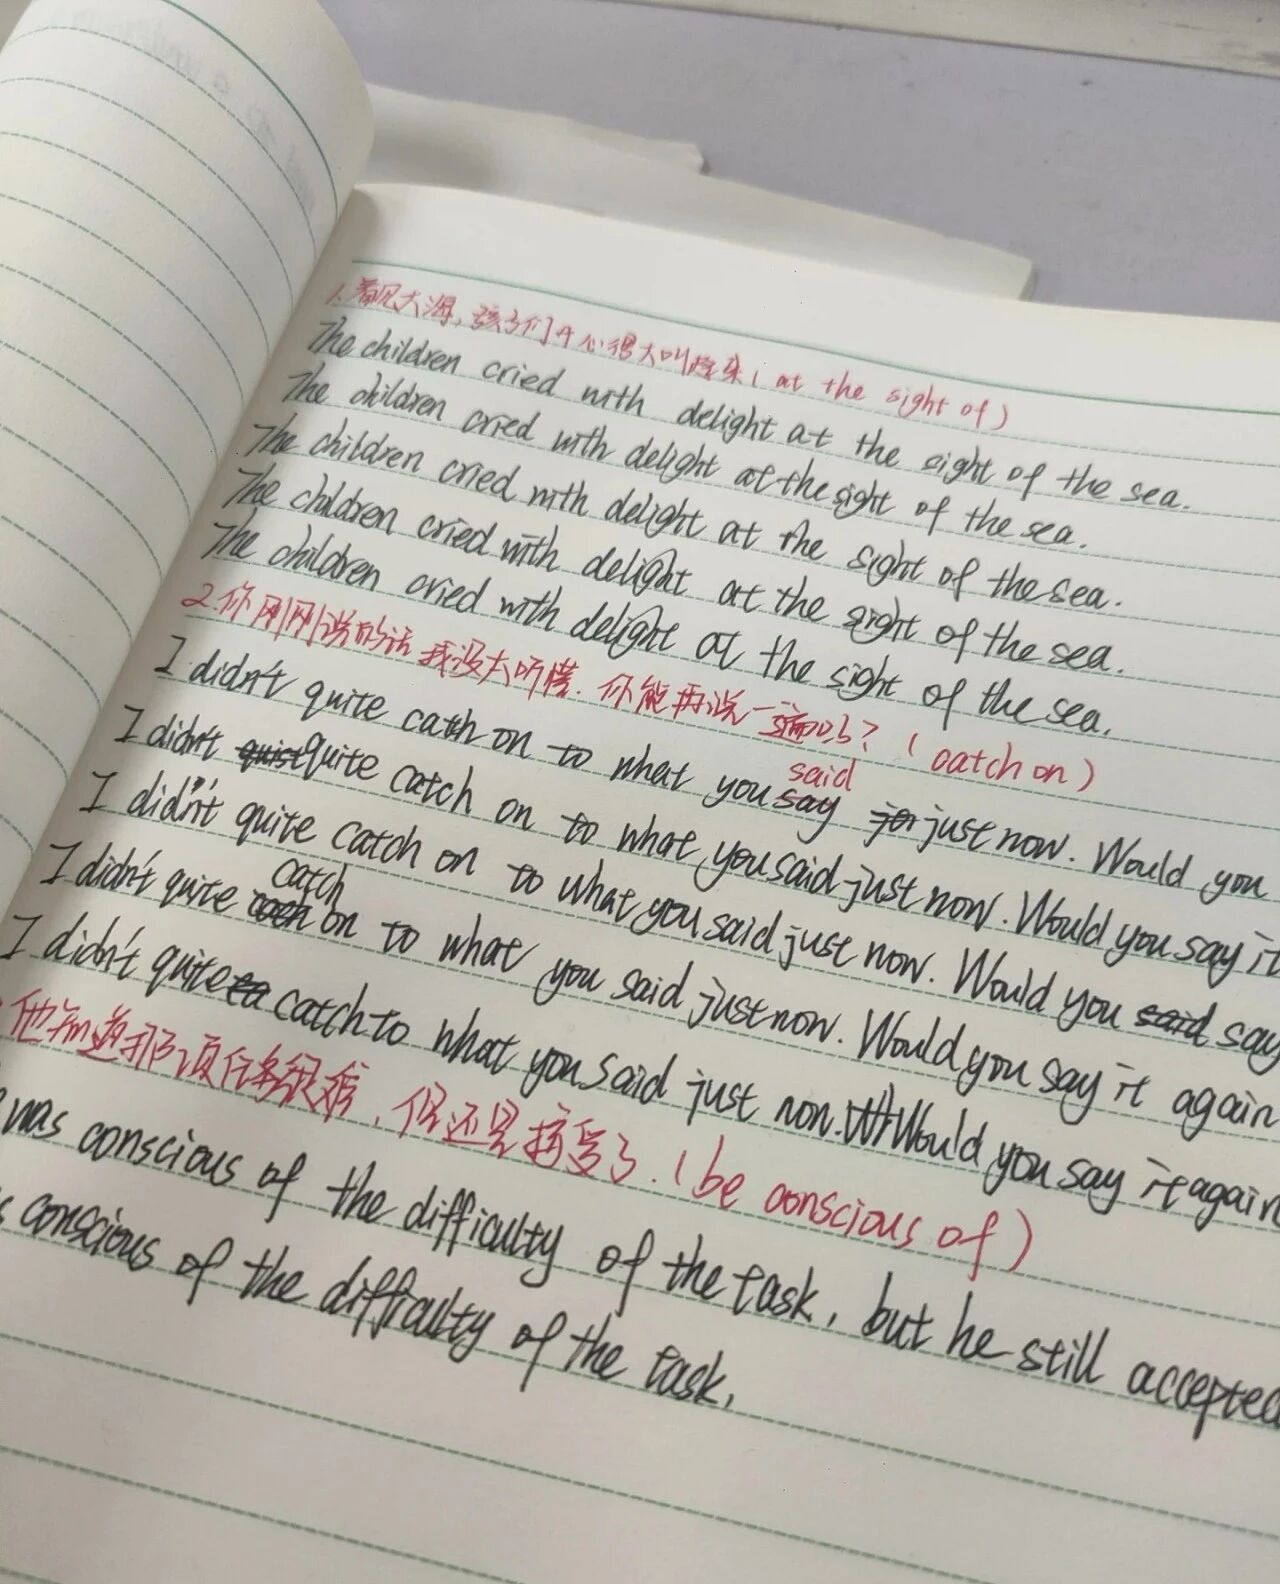 1. 看见大海，孩子们开心得大叫起来（at the sight of）
The children cried with delight at the sight of the sea.
The children cried with delight at the sight of the sea.
The children cried with delight at the sight of the sea.
The children cried with delight at the sight of the sea.
The children cried with delight at the sight of the sea.
2. 你刚刚说的话我没太听懂. 你能再说一遍吗？（catch on）
I didn't quite catch on to what you say said jus just now. Would you
I didn't quist quite catch on to what you said just now. Would you say it
I didn't quite catch on to what you said just now. Would you said say
I didn't quite catch on to what you said just now. Would you say it again
I didn't quite ca catch to what you said just now. Would you say it again
他知道那项任务很难，但还是接受了.（be conscious of）
was conscious of the difficulty of the task, but he still accepted
conscious of the difficulty of the task,